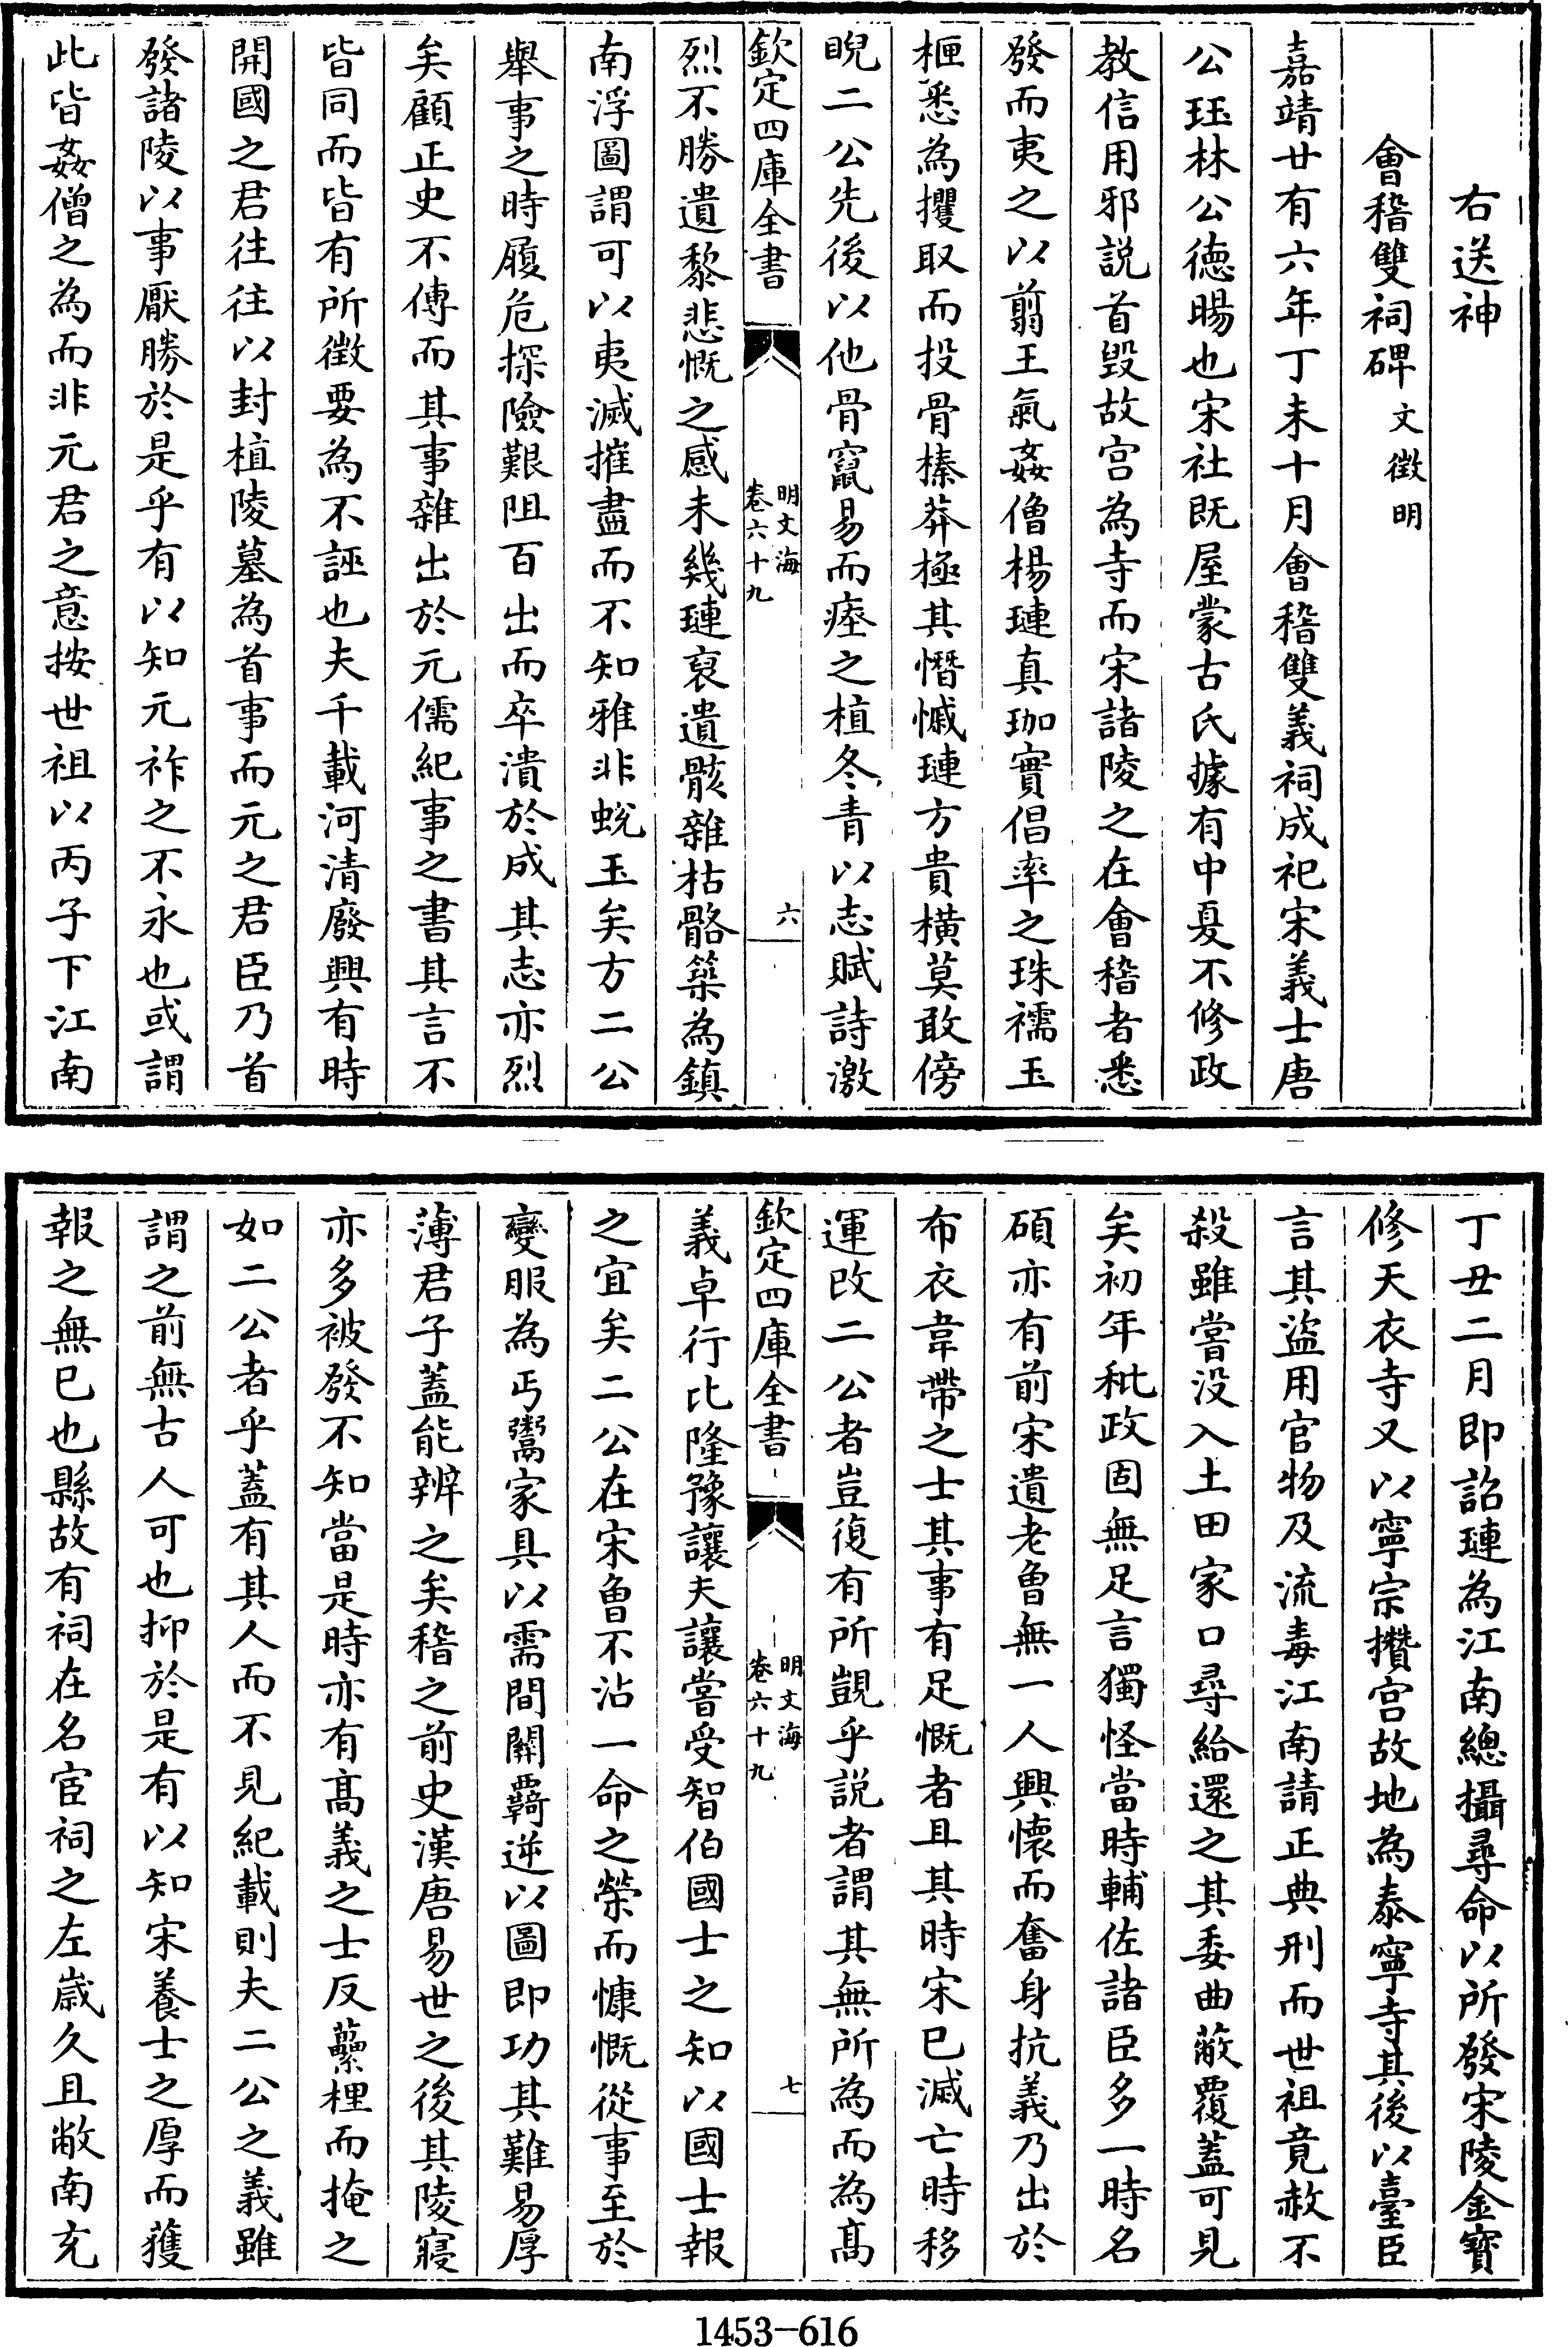 右送神
會稽雙祠碑 文徵明
嘉靖廿有六年丁未十月會稽雙義祠成祀宋義士唐
公珏林公德暘也宋社既屋蒙古氏據有中夏不修政
教信用邪説首毁故宫為寺而宋諸陵之在會稽者悉
發而夷之以翦王氣姦僧楊璉真珈實倡率之珠襦玉
柙悉為攫取而投骨榛莽極其憯慽璉方貴横莫敢傍
睨二公先後以他骨竄易而瘞之植冬青以志賦詩激
欽定四庫全書
明文海
卷六十九
六
烈不勝遺黎悲慨之感未幾璉裒遺骸雜枯骼築為鎮
南浮圖謂可以夷滅摧盡而不知雅非蜕玉矣方二公
舉事之時履危探險艱阻百出而卒潰於成其志亦烈
矣顧正史不傳而其事雜出於元儒紀事之書其言不
皆同而皆有所徵要為不誣也夫千載河清廢興有時
開國之君往往以封植陵墓為首事而元之君臣乃首
發諸陵以事厭勝於是乎有以知元祚之不永也或謂
此皆姦僧之為而非元君之意按世祖以丙子下江南
丁丑二月即詔璉為江南總攝尋命以所發宋陵金寳
修天衣寺又以寧宗攢宫故地為泰寧寺其後以臺臣
言其盜用官物及流毒江南請正典刑而世祖竟赦不
殺雖嘗没入土田家口尋給還之其委曲蔽覆蓋可見
矣初年秕政固無足言獨怪當時輔佐諸臣多一時名
碩亦有前宋遺老曾無一人興懷而奮身抗義乃出於
布衣韋帶之士其事有足慨者且其時宋已滅亡時移
運改二公者豈復有所覬乎説者謂其無所為而為髙
欽定四庫全書
明文海
卷六十九
七
義卓行比隆豫讓夫讓嘗受智伯國士之知以國士報
之宜矣二公在宋曾不沾一命之榮而慷慨從事至於
變服為丐鬻家具以需間關覊逆以圖即功其難易厚
薄君子蓋能辨之矣稽之前史漢唐易世之後其陵寢
亦多被發不知當是時亦有髙義之士反虆梩而掩之
如二公者乎蓋有其人而不見紀載則夫二公之義雖
謂之前無古人可也抑於是有以知宋養士之厚而獲
報之無已也縣故有祠在名宦祠之左嵗久且敝南充
1453-616